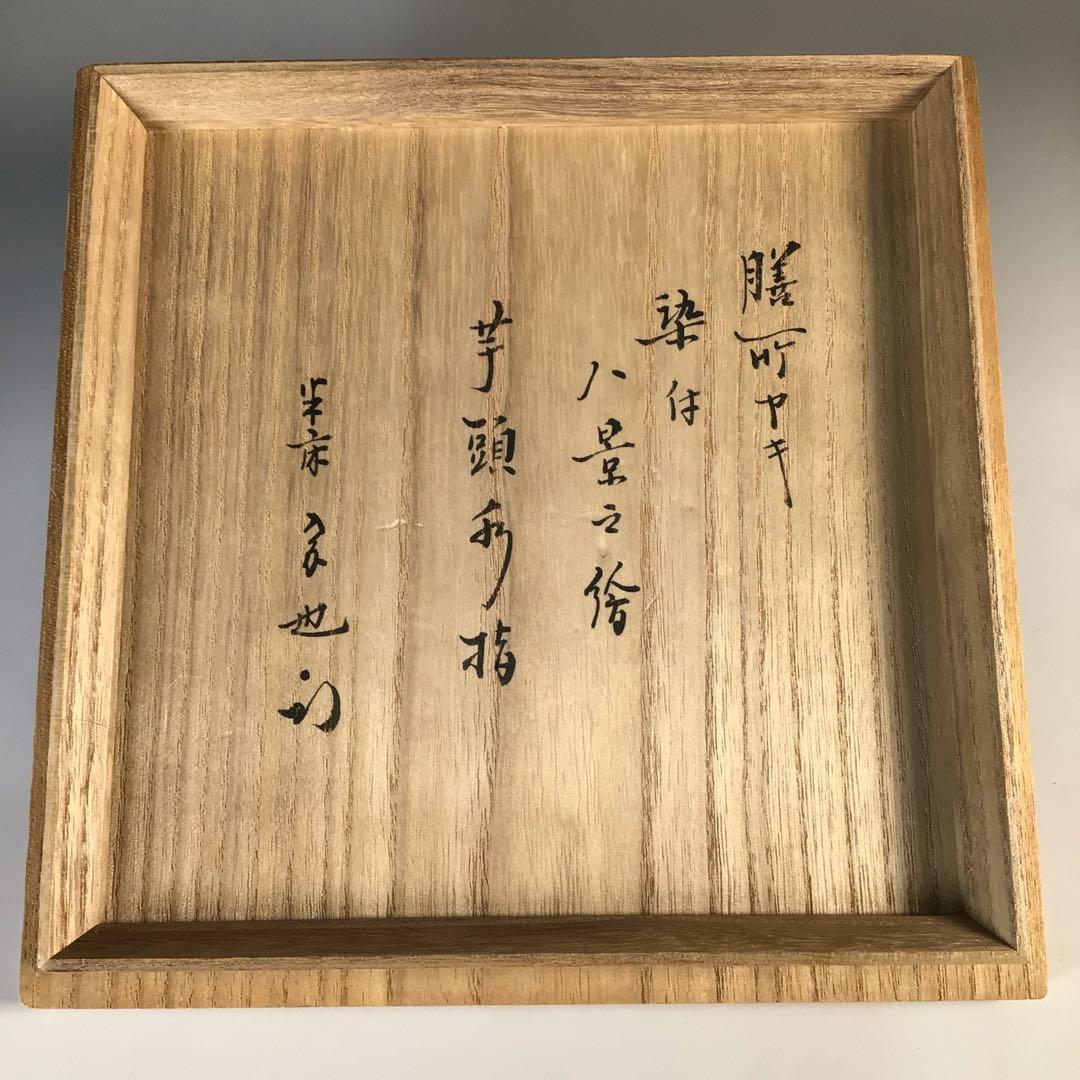 膳所ヤキ
染付
八景之絵
芋頭水指
半床 也